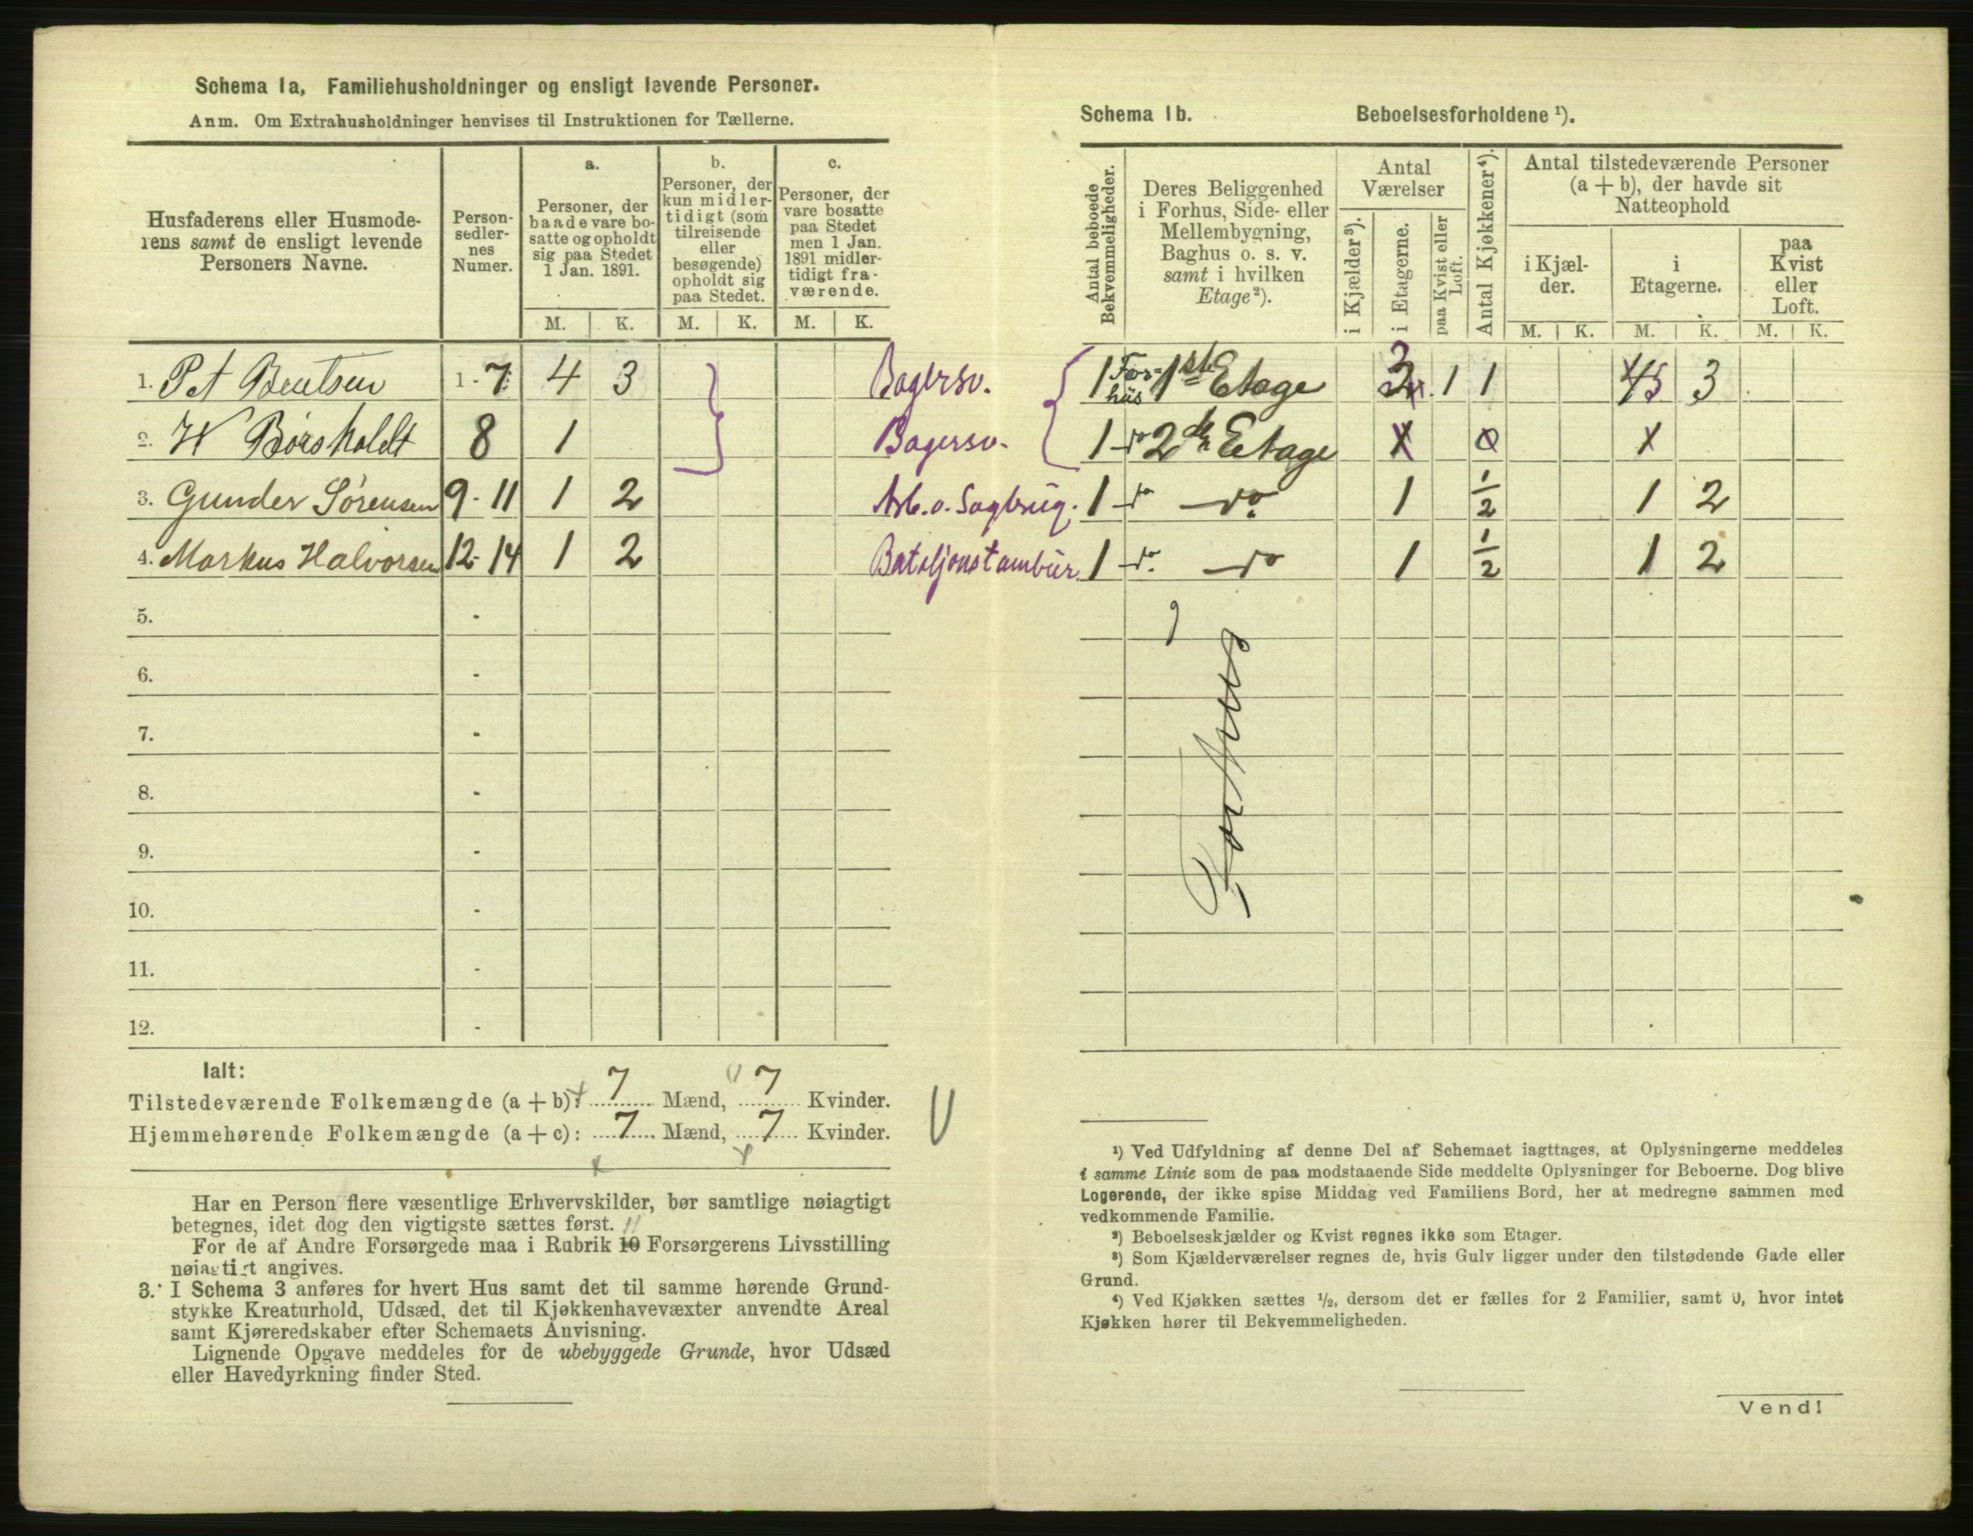 Schema 1a, Familiehusholdninger og ensligt levende Personer.
Anm. Om Extrahusholdninger henvises til Instruktionen for Tællerne.
Husfaderens eller Husmoderens samt de ensligt levende Personers Navne.
Personsedlernes Numer.
a.
Personer, der baade vare bosatte og opholdt sig paa Stedet 1 Jan. 1891.
b.
Personer, der kun midlertidigt (som tilreisende eller besøgende) opholdt sig paa Stedet.
c.
Personer, der vare bosatte paa Stedet men 1 Jan. 1891 midlertidigt fraværende.
M. K. M. K. M. K.
1. P A Bentsen 1 - 7 4 3 Bagersv.
2. H Børsholdt 8 1 Bagersv.
3. Gunder Sørensen 9 - 11 1 2 Arb. o. Sagbrug.
4. Markus Halvorsen 12 - 14 1 2 Bataljonstambur.
5. -
6. -
7. -
8. -
9. -
10. -
11. -
12. -
Ialt:
Tilstedeværende Folkemængde (a + b): 7 Mænd, 7 Kvinder.
Hjemmehørende Folkemængde (a + c): 7 Mænd, 7 Kvinder.
Har en Person flere væsentlige Erhvervskilder, bør samtlige nøiagtigt
betegnes, idet dog den vigtigste sættes først.
11
For de af Andre Forsørgede maa i Rubrik 10 Forsørgerens Livsstilling
nøiagtigt angives.
3. I Schema 3 anføres for hvert Hus samt det til samme hørende Grund-
stykke Kreaturhold, Udsæd, det til Kjøkkenhavevæxter anvendte Areal
samt Kjøreredskaber efter Schemaets Anvisning.
Lignende Opgave meddeles for de ubebyggede Grunde, hvor Udsæd
eller Havedyrkning finder Sted.
Schema 1b. Beboelsesforholdene ¹).
Antal beboede Bekvemmeligheder.
Deres Beliggenhed i Forhus, Side- eller Mellembygning, Baghus o. s. v. samt i hvilken Etage²).
Antal Værelser
i Kjælder³).
i Etagerne.
paa Kvist eller Loft.
Antal Kjøkkener⁴).
Antal tilstedeværende Personer (a + b), der havde sit Natteophold
i Kjælder.
i Etagerne.
paa Kvist eller Loft.
M. K. M. K. M. K.
1 Forhus 1ste Etage 3 1 1 5 3
1 do 2den Etage 0
1 do do 1 ½ 1 2
1 do do 1 ½ 1 2
Forhus
¹) Ved Udfyldning af denne Del af Schemaet iagttages, at Oplysningerne meddeles
i samme Linie som de paa modstaaende Side meddelte Oplysninger for Beboerne. Dog blive
Logerende, der ikke spise Middag ved Familiens Bord, her at medregne sammen med
vedkommende Familie.
²) Beboelseskjælder og Kvist regnes ikke som Etager.
³) Som Kjælderværelser regnes de, hvis Gulv ligger under den tilstødende Gade eller
Grund.
⁴) Ved Kjøkken sættes ½, dersom det er fælles for 2 Familier, samt 0, hvor intet
Kjøkken hører til Bekvemmeligheden.
Vend!